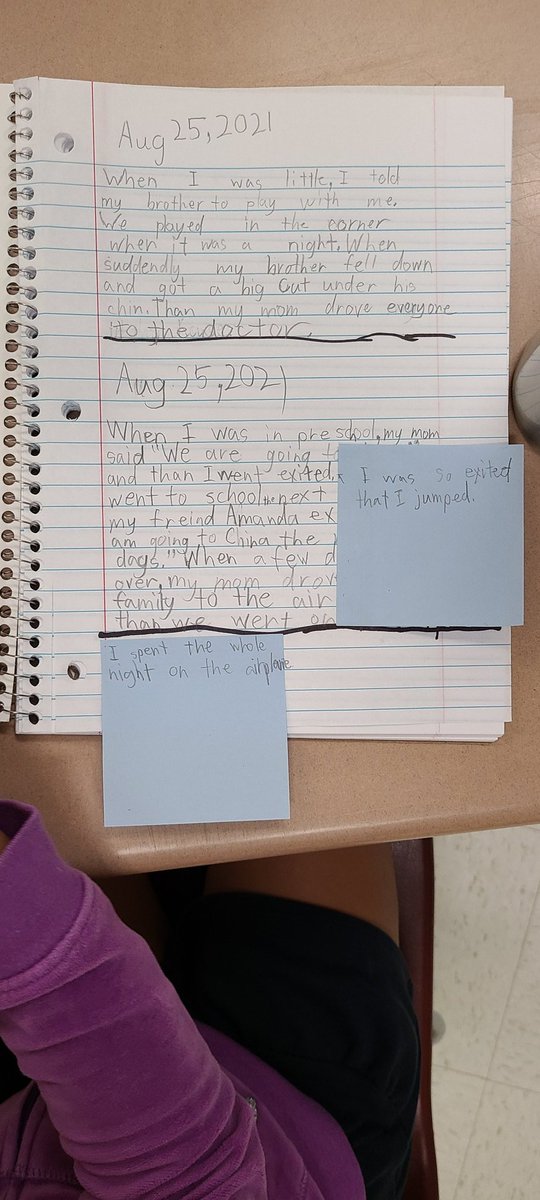 Aug 25, 2021
When I was little, I told
my brother to play with me.
We played in the corner
when it was a night. When
suddendly my brother fell down
and got a big cut under his
chin. Than my mom drove everyone
to the doctor.
Aug 25, 2021
When I was in preschool, my mom
said "We are going
and than I went exited.
went to school the next
my freind Amanda
am going to China the
days." When a few
over, my mom
family to the
than we went on
I was so exited
that I jumped.
I spent the whole
night on the airplane